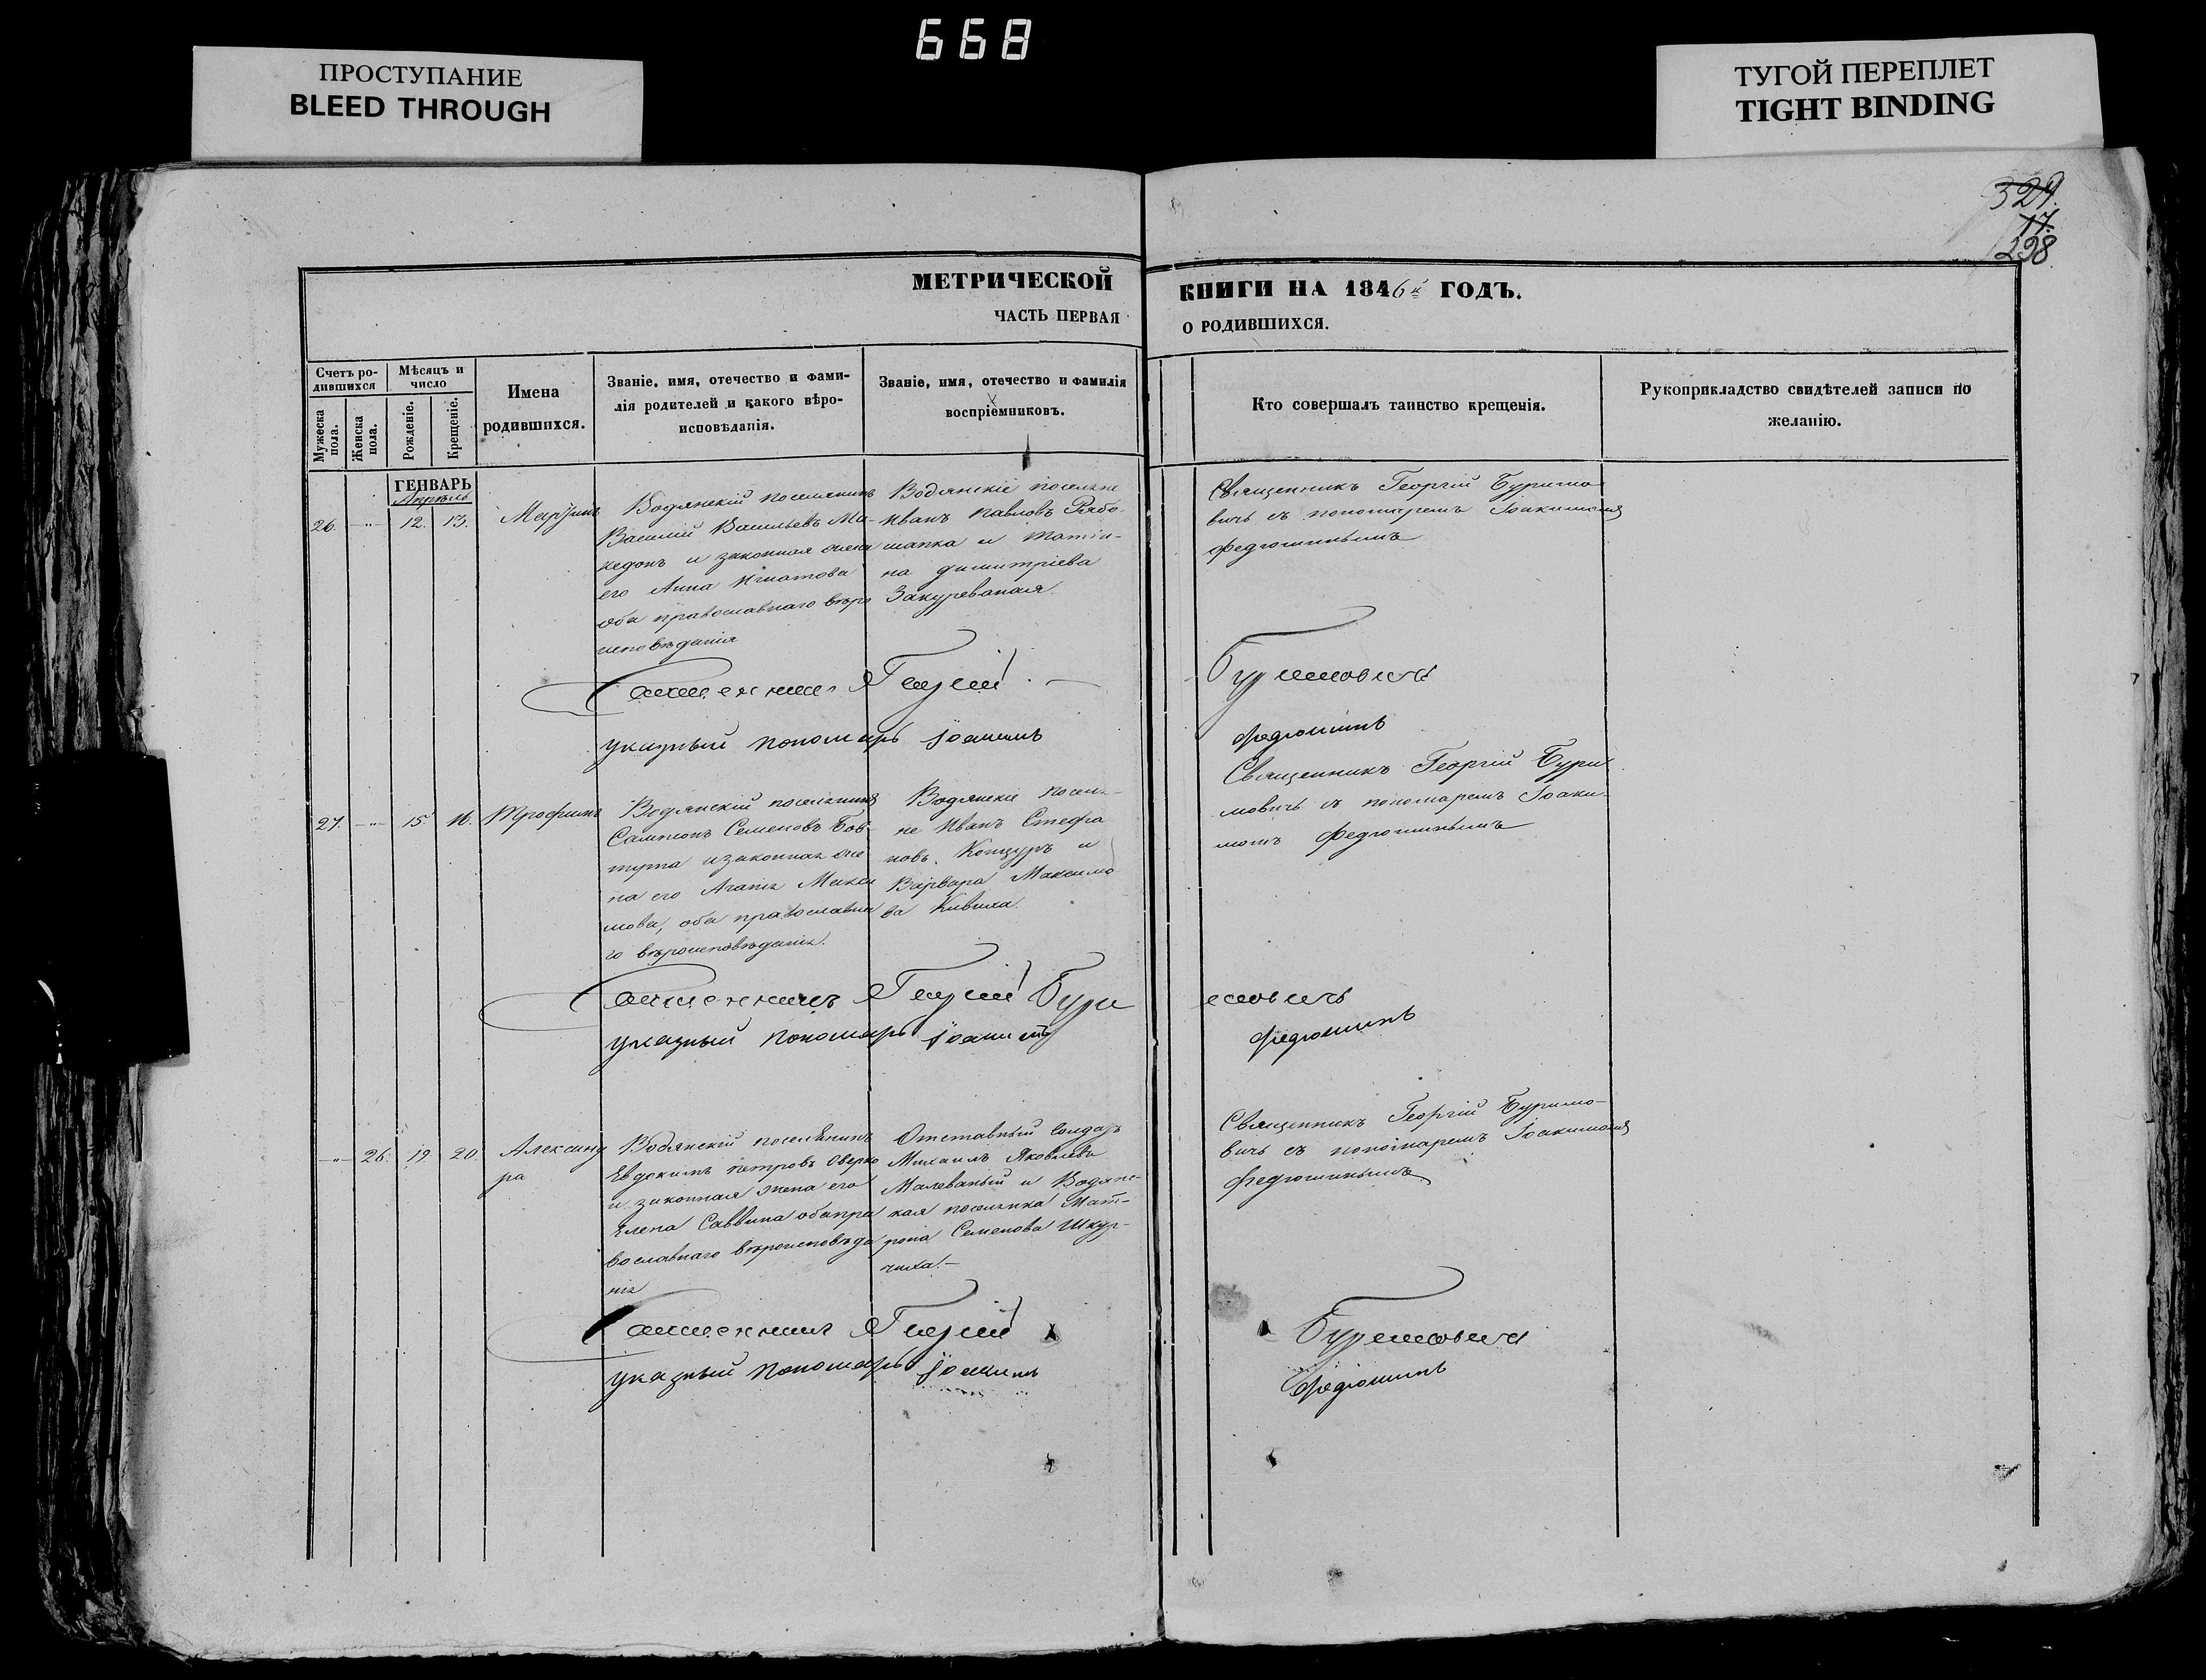 668
ПРОСТУПАНИЕ
BLEED THROUGH
ТУГОЙ ПЕРЕПЛЕТ
TIGHT BINDING
329.
17.
298
МЕТРИЧЕСКОЙ
ЧАСТЬ ПЕРВАЯ
КНИГИ НА 1846й ГОДЪ.
О РОДИВШИХСЯ.
Счетъ ро-
дившихся
Мужеска пола.
Женска пола.
Мѣсяцъ и
число
Рожденіе.
Крещеніе.
Имена
родившихся.
Званіе, имя, отечество и фами-
лія родителей и какого вѣро-
исповѣданія.
Званіе, имя, отечество и фамилія
воспріемниковъ.
Кто совершалъ таинство крещенія.
Рукоприкладство свидѣтелей записи по
желанію.
ГЕНВАРЬ
Апрѣль
26. -"- 12. 13.
Водянскій поселянинъ
Василій Васильевъ Ма-
кедонъ и законная жена
его Анна Игнатова
оба православнаго вѣро
исповѣданія
Водянскіе поселяне
Иванъ Павловъ Рябо-
шапка и Татія-
на Димитріева
Закуреваная.
Священникъ Георгій Буримо
вичь съ пономаремъ Іоакимомъ
Федюшинымъ
Священникъ Георгій
Буримовичь
указный пономарь Іоакимъ
Федюшинъ
27. -"- 15. 16.
Трофимъ
Водянскій поселянинъ
Сампсонъ Семеновъ Бов-
туна и законная же
на его Агапія Макси
мова, оба православна
го вѣроисповѣданія.
Водянскіе поселя-
не Иванъ Стефа
новъ Коцуръ и
Варвара Максимо
ва Кивиха.
Священникъ Георгій Бури
мовичь съ пономаремъ Іоаки
момъ Федюшинымъ
Священникъ Георгій Бури
мовичь
указный пономарь Іоакимъ
Федюшинъ
-"- 26. 19. 20
Александ
ра
Водянскій поселянинъ
Евдокимъ Петровъ Оверко
и законная жена его
Елена Саввина оба пра
вославнаго вѣроисповѣда
нія
Отставный солдатъ
Михаилъ Яковлевъ
Малеваный и Водянс-
кая поселянка Мат-
рона Семенова Шкур-
чиха.-
Священникъ Георгій Буримо-
вичь съ пономаремъ Іоакимомъ
Федюшинымъ
Священникъ Георгій
Буримовичь
указный пономарь Іоакимъ
Федюшинъ